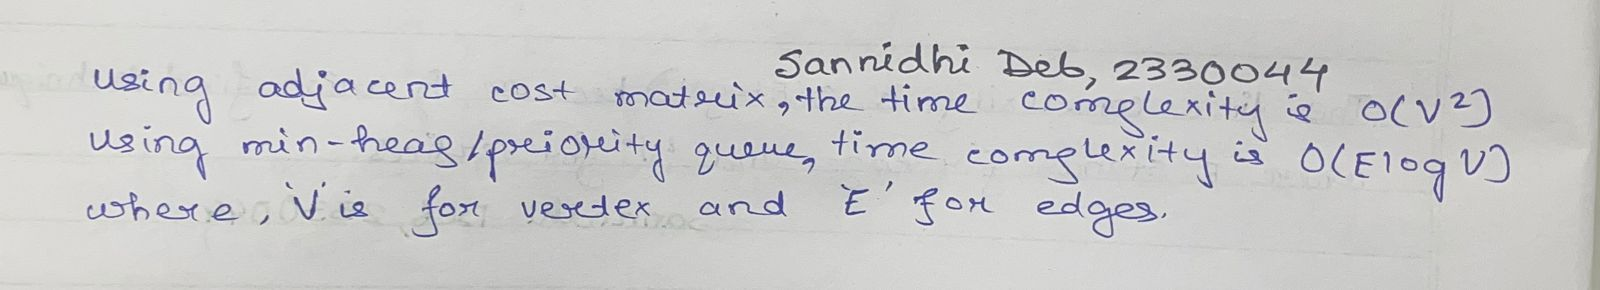 Sannidhi Deb, 2330044
Using adjacent cost matrix, the time complexity is O(V²)
Using min-heap/priority queue, time complexity is O(E log V)
where, 'V' is for vertex and 'E' for edges.